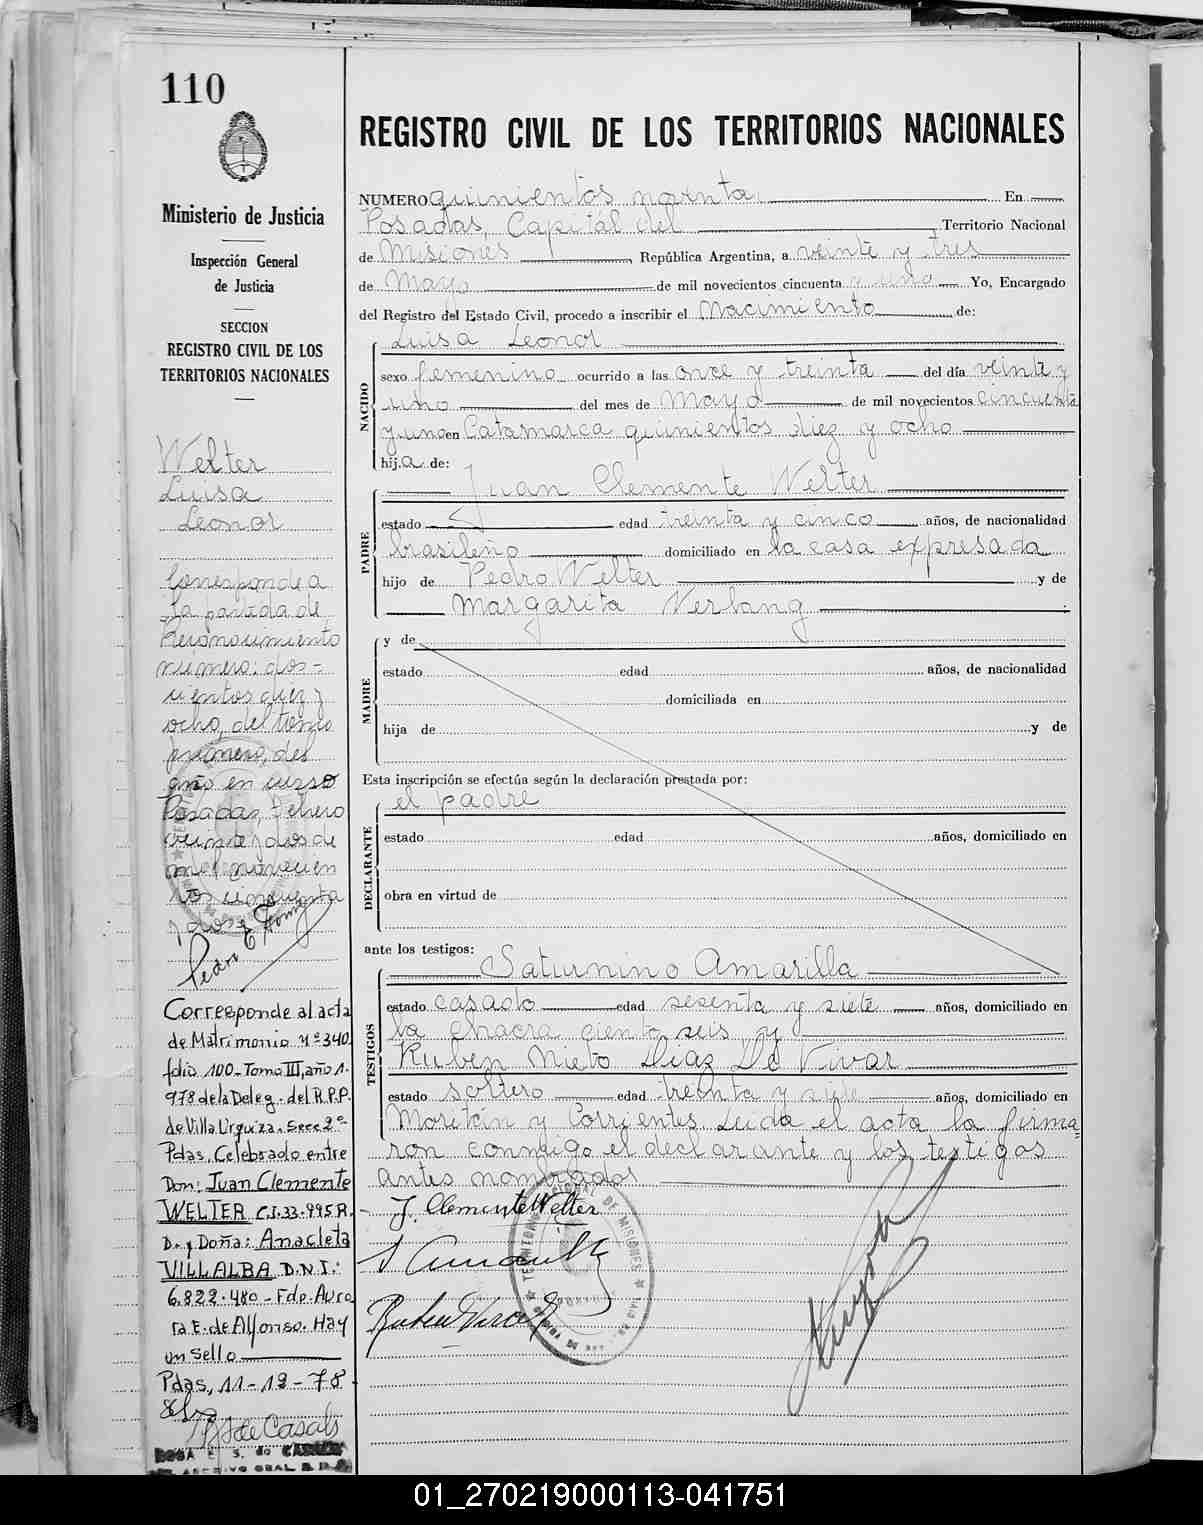 110
Ministerio de Justicia
Inspección General
de Justicia
SECCION
REGISTRO CIVIL DE LOS
TERRITORIOS NACIONALES
Welter
Luisa
Leonor
Corresponde a
la partida de
Reconocimiento
número: dos-
cientos diez y
ocho, del tomo
primero, del
año en curso
Posadas, Febrero
veinte y dos de
mil novecien
tos cincuenta
y dos
Pedro E
Corresponde al acta
de Matrimonio nº 340
folio 100 - Tomo III, año 1.
978 de la Deleg. del R.P.P.
de Villa Urquiza. Secc 2ª
Pdas. Celebrado entre
Don: Juan Clemente
WELTER C.I. 33.995 R.
D. y Doña: Anacleta
VILLALBA D.N.I.:
6.822.480 - Fdo. Auro
ra E. de Alfonso. Hay
un sello
Pdas, 11-12-78
de Casals
ROSA E. S. de CASALS
REGISTRO CIVIL DE LOS TERRITORIOS NACIONALES
NUMERO quinientos noventa En
Posadas, Capitál del Territorio Nacional
de Misiones República Argentina, a veinte y tres
de Mayo de mil novecientos cincuenta y uno Yo, Encargado
del Registro del Estado Civil, procedo a inscribir el Nacimiento de:
NACIDO
Luisa Leonor
sexo femenino ocurrido a las once y treinta del día veinte y
uno del mes de Mayo de mil novecientos cincuenta
y uno en Catamarca quinientos diez y ocho
hij.a de:
PADRE
Juan Clemente Welter
estado edad treinta y cinco años, de nacionalidad
brasileño domiciliado en la casa expresada
hijo de Pedro Welter y de
Margarita Nerbang
MADRE
y de
estado edad años, de nacionalidad
domiciliada en
hija de y de
Esta inscripción se efectúa según la declaración prestada por:
DECLARANTE
el padre
estado edad años, domiciliado en
obra en virtud de
ante los testigos:
TESTIGOS
Saturnino Amarilla
estado casado edad sesenta y siete años, domiciliado en
la chacra ciento seis y
Ruben Nieto Diaz De Vivar
estado soltero edad treinta y siete años, domiciliado en
Moritán y Corrientes Leida el acta la firma=
ron conmigo el declarante y los testigos
antes nombrados
J. Clemente Welter
TERRITORIO NACIONAL DE MISIONES
01_270219000113-041751